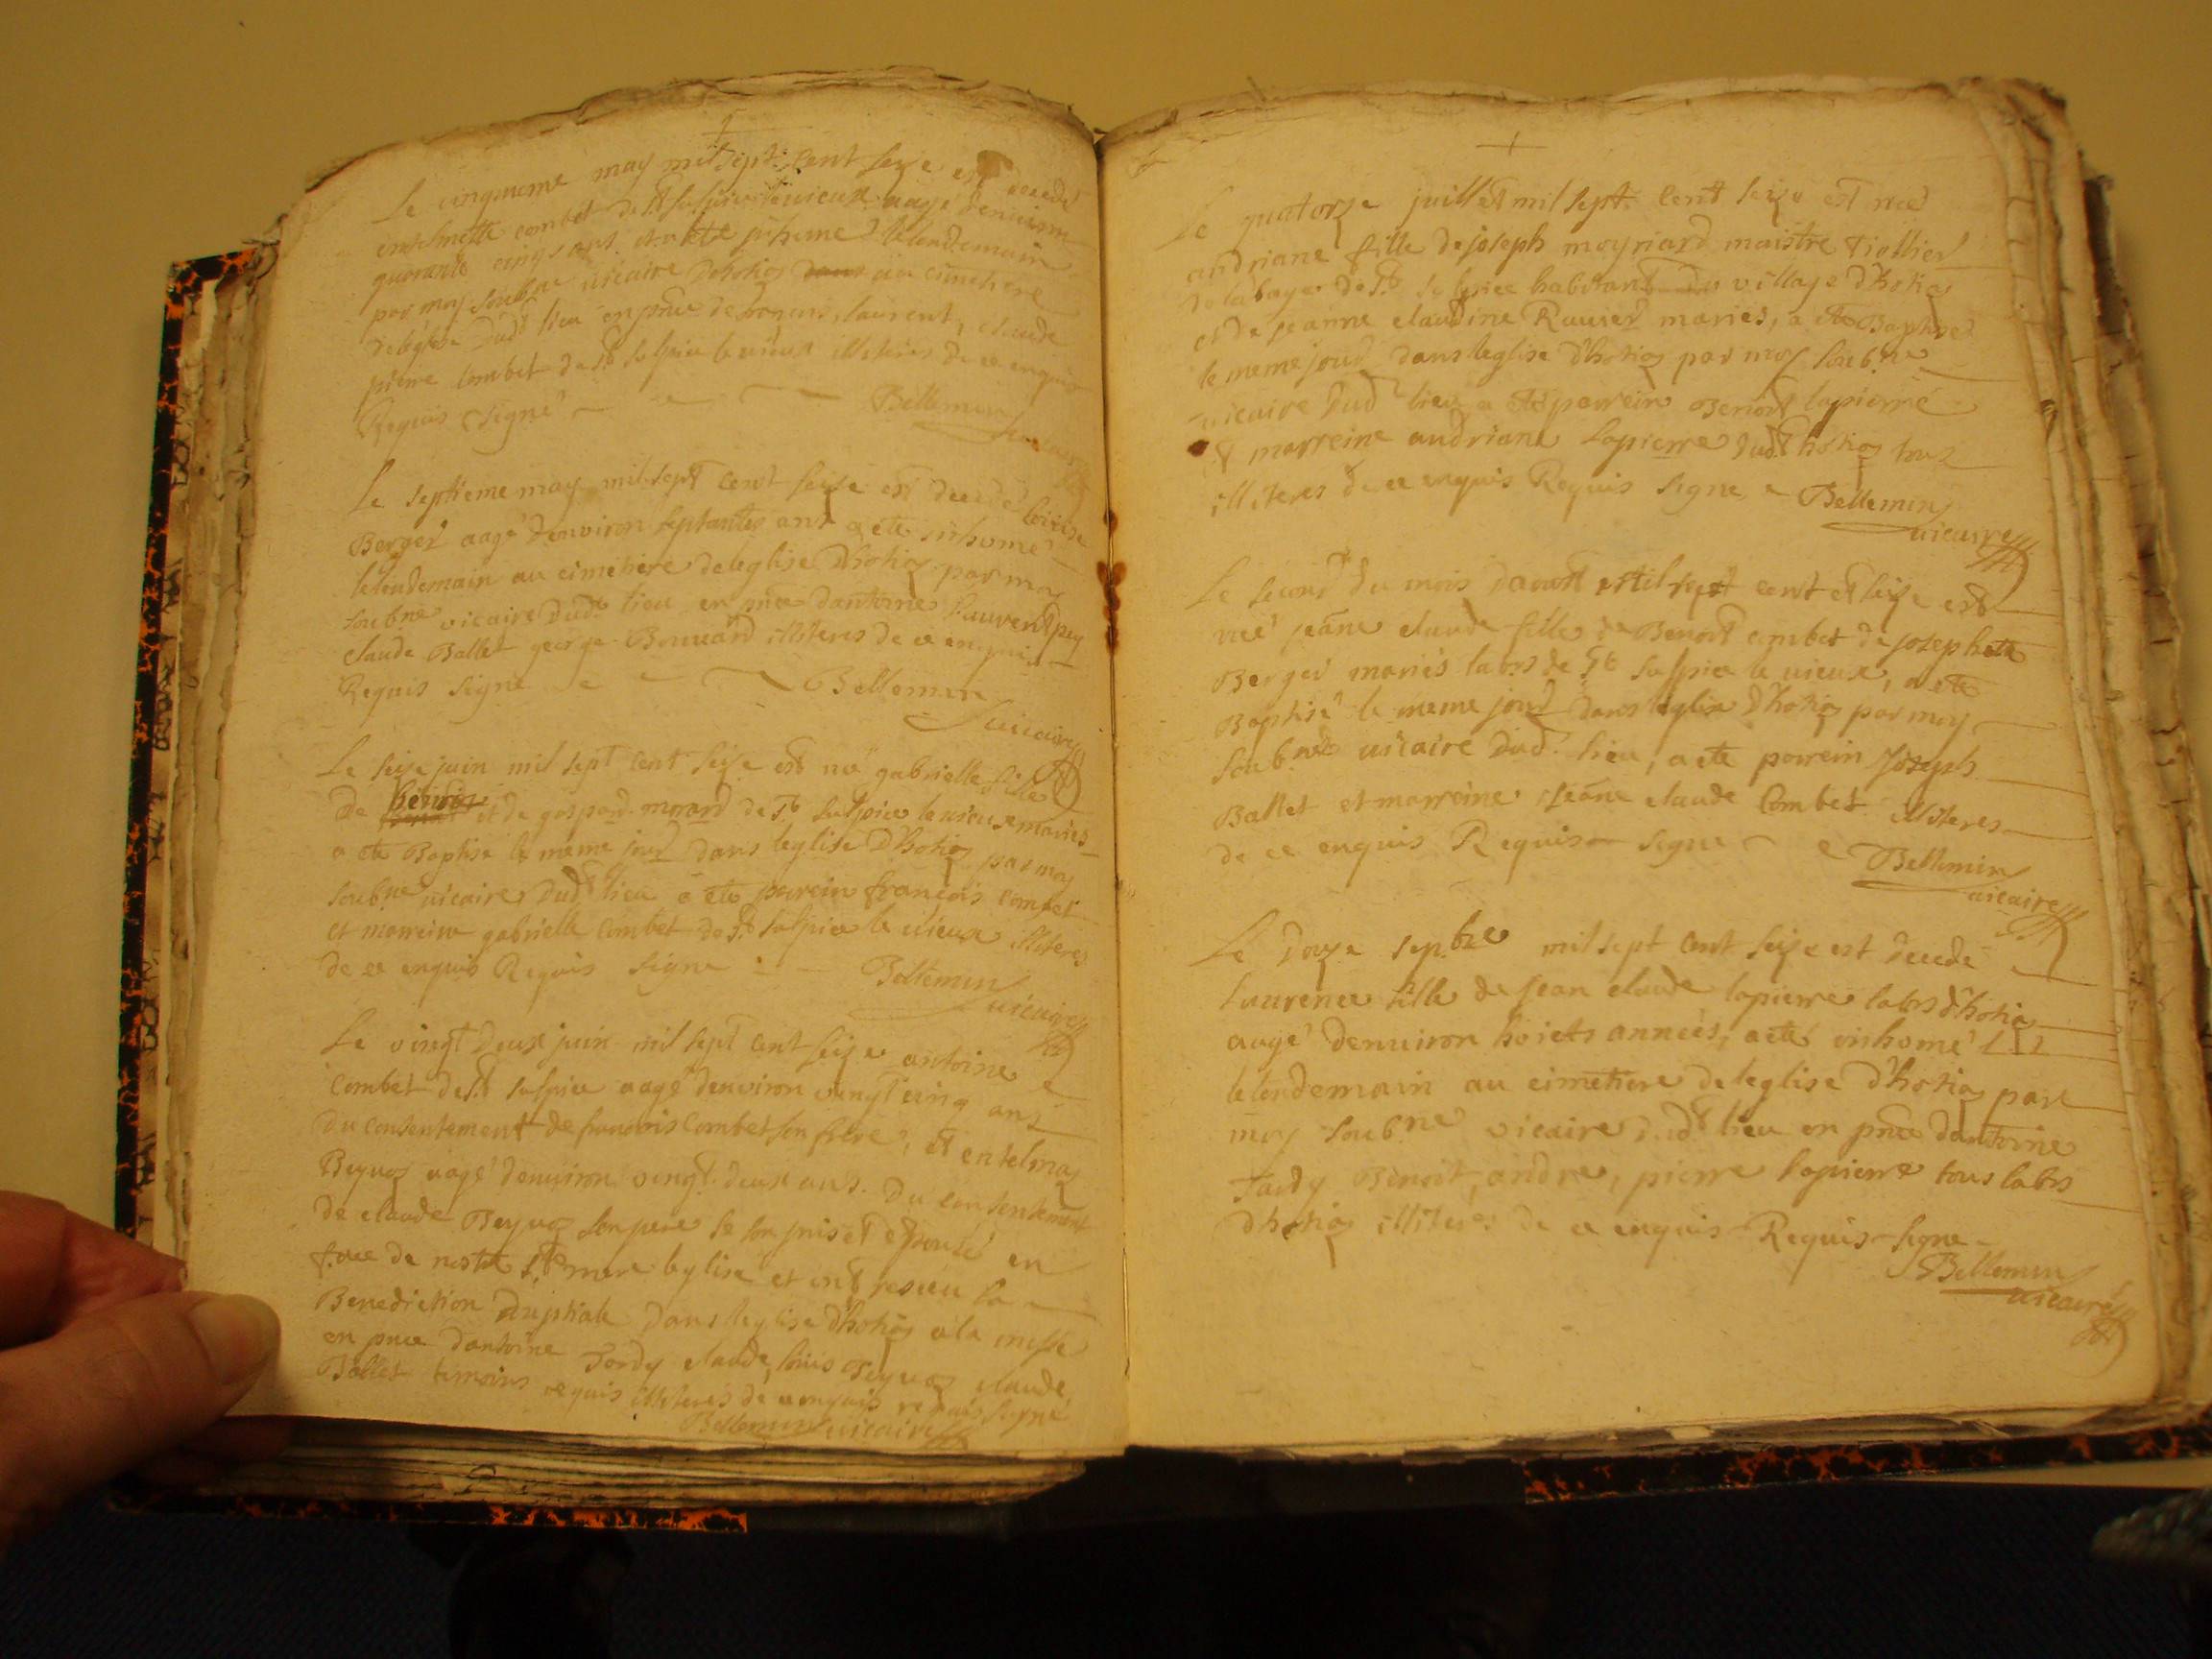 Le cinquieme may mil sept cent seize est decedé
combet de st sulpice le vieux aagé denviron
quarante cinq ans et a eté inhumé le lendemain
par moy soubne vicaire dhotiog dans au cimetiere
de leglise dudt lieu en pnce de francois, laurent, claude
pierre combet de st sulpice le vieux illiteres de ce enquis
Requis signé Bellemin
vicaire
Le septieme may mil sept cent seize est decedé loüise
Berger aagé denviron septantes ans a ete inhumé
le lendemain au cimetiere de leglise dhotiog par moy
soubne vicaire dudt lieu en pnce dantoine laurent pey
claude Ballet george Bouuard illiteres de ce enquis
Requis signe Bellemin
vicaire
Le seize juin mil sept cent seize est né gabrielle fille
de et de gaspard mirard de st sulpice le vieux mariés
a ete Baptisé le meme jour dans leglise Dhotiog par moy
soubne vicaire dudt lieu a ete parrein françois combet
et marreine gabrielle combet de st sulpice le vieux illiteres
de ce enquis Requis signe Bellemin
vicaire
Le vingt deux juin mil sept cent seize antoine
Combet de st sulpice aagé denviron vingt cinq ans
du consentement de francois Combet son frere, et entelmaz
Beyuoz aagé denviron vingt deux ans du consentement
de claude Beyuoz son pere se son pris et epousé en
face de nostre ste mere leglise et ont reseu la
Benediction Nuptiale dans leglise dhotiog a la messe
en pnce dantoine Tardy claude, louis Beyuoz claude
Ballet temoins requis illiteres de ce enquis requis signé
Bellemin vicaire
Le quatorze juillet mil sept cent seize est neé
andriane fille de joseph moyriard maistre Tiollier
de labaye de st sulpice habitant du village dhotiog
et de jeanne claudine Rauier mariés, a ete Baptisé
le meme jour dans leglise dhotiog par moy soubne
vicaire dudt lieu a eté parrein Benoit lapierre
& marreine andriane lapierre dudt hotiog tous
illiteres de ce enquis Requis signe Bellemin
vicaire
Le second du mois daoust mil sept cent et seize est
neé jeâne claude fille de Benoit combet de josephete
Berger mariés labrs de st sulpice le vieux, a ete
Baptisé le meme jour dans leglise dhotiog par moy
soubne vicaire dudt lieu, a ete parrein Joseph
Ballet et marreine jeâne claude Combet illiteres
de ce enquis Requis signe Bellemin
vicaire
Le douze sepbre mil sept cent seize est decedé
laurence fille de jean claude lapierre labrs dhotiog
aagé denviron huict années, a eté inhumé
le lendemain au cimetiere de leglise dhotiog par
moy soubne vicaire dudt lieu en pnce dantoine
Tardy Benoit, andre, pierre lapierre tous labrs
dhotiog illiteres de ce enquis Requis signe
Bellemin
vicaire